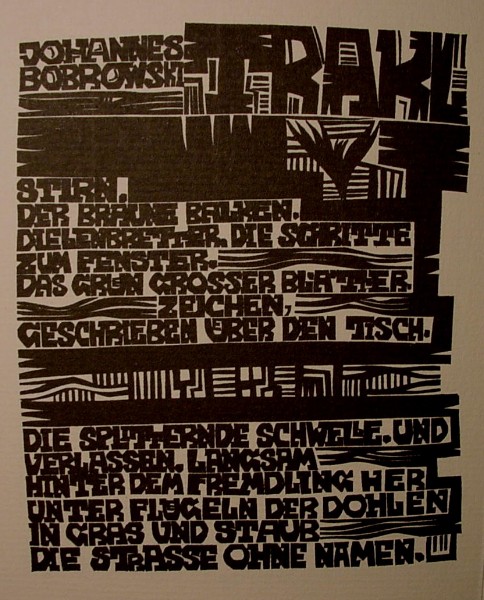 JOHANNES
BOBROWSKI
TRAKL
STIRN.
DER BRAUNE BALKEN.
DIELENBRETTER. DIE SCHRITTE
ZUM FENSTER.
DAS GRÜN GROSSER BLÄTTER.
ZEICHEN,
GESCHRIEBEN ÜBER DEN TISCH.
DIE SPLITTERNDE SCHWELLE. UND
VERLASSEN. LANGSAM
HINTER DEM FREMDLING HER
UNTER FLÜGELN DER DOHLEN
IN GRAS UND STAUB
DIE STRASSE OHNE NAMEN.